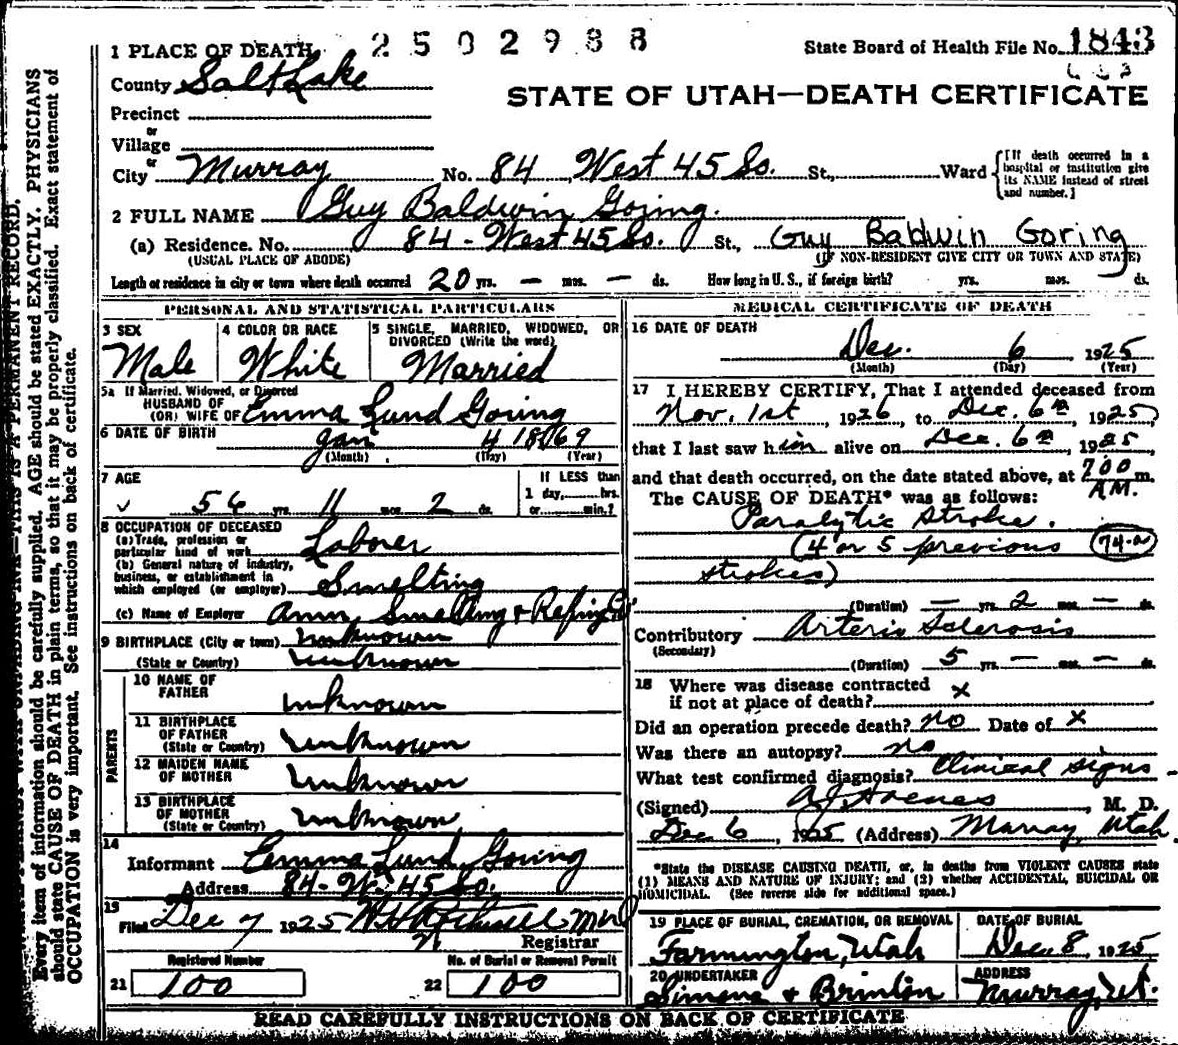 2502988
State Board of Health File No. 1843
STATE OF UTAH—DEATH CERTIFICATE
1 PLACE OF DEATH
County Salt Lake
Precinct
or
Village
or
City Murray No. 84 West 45 So. St., Ward
[If death occurred in a hospital or institution give its NAME instead of street and number.]
2 FULL NAME Guy Baldwin Goring.
(a) Residence. No. 84 - West 45 So. St., Guy Baldwin Goring
(USUAL PLACE OF ABODE) (IF NON-RESIDENT GIVE CITY OR TOWN AND STATE)
Length of residence in city or town where death occurred 20 yrs. — mos. — ds. How long in U. S., if foreign birth? yrs. mos. ds.
PERSONAL AND STATISTICAL PARTICULARS
3 SEX Male
4 COLOR OR RACE White
5 SINGLE, MARRIED, WIDOWED, OR DIVORCED (Write the word) Married
5a If Married, Widowed, or Divorced
HUSBAND OF
(OR) WIFE OF Emma Lund Goring
6 DATE OF BIRTH Jan 4 1869
(Month) (Day) (Year)
7 AGE 56 yrs. 11 mos. 2 ds.
If LESS than
1 day, hrs.
or min.?
8 OCCUPATION OF DECEASED
(a) Trade, profession or
particular kind of work Laborer
(b) General nature of industry,
business, or establishment in
which employed (or employer) Smelting
(c) Name of Employer Amn Smelting & Refing Co
9 BIRTHPLACE (City or town) unknown
(State or Country) unknown
PARENTS
10 NAME OF
FATHER unknown
11 BIRTHPLACE
OF FATHER
(State or Country) unknown
12 MAIDEN NAME
OF MOTHER unknown
13 BIRTHPLACE
OF MOTHER
(State or Country) unknown
14
Informant Emma Lund Goring
Address 84-W-45 So.
15
Filed Dec 7 1925
Registrar
Registered Number
21 100
No. of Burial or Removal Permit
22 100
MEDICAL CERTIFICATE OF DEATH
16 DATE OF DEATH
Dec. 6 1925
(Month) (Day) (Year)
17 I HEREBY CERTIFY, That I attended deceased from
Nov. 1st, 1926 to Dec. 6th 1925
that I last saw him alive on Dec. 6th, 1925,
and that death occurred, on the date stated above, at 7 00 m.
A.M.
The CAUSE OF DEATH* was as follows:
Paralytic Stroke.
(4 or 5 previous 74-a
strokes)
(Duration) — yrs. 2 mos. — ds.
Contributory Arterio Sclerosis
(Secondary)
(Duration) 5 yrs. — mos. — ds.
18 Where was disease contracted
if not at place of death? x
Did an operation precede death? no Date of x
Was there an autopsy? no
What test confirmed diagnosis? Clinical signs
(Signed) M. D.
Dec 6, 1925 (Address) Murray, Utah
*State the DISEASE CAUSING DEATH, or, in deaths from VIOLENT CAUSES state
(1) MEANS AND NATURE OF INJURY; and (2) whether ACCIDENTAL, SUICIDAL OR
HOMICIDAL. (See reverse side for additional space.)
19 PLACE OF BURIAL, CREMATION, OR REMOVAL
Farmington, Utah
DATE OF BURIAL
Dec 8, 1925
20 UNDERTAKER
Simons & Brinton
ADDRESS
Murray, Ut.
READ CAREFULLY INSTRUCTIONS ON BACK OF CERTIFICATE
THIS IS A PERMANENT RECORD.
Every item of information should be carefully supplied. AGE should be stated EXACTLY. PHYSICIANS
should state CAUSE OF DEATH in plain terms, so that it may be properly classified. Exact statement of
OCCUPATION is very important. See instructions on back of certificate.